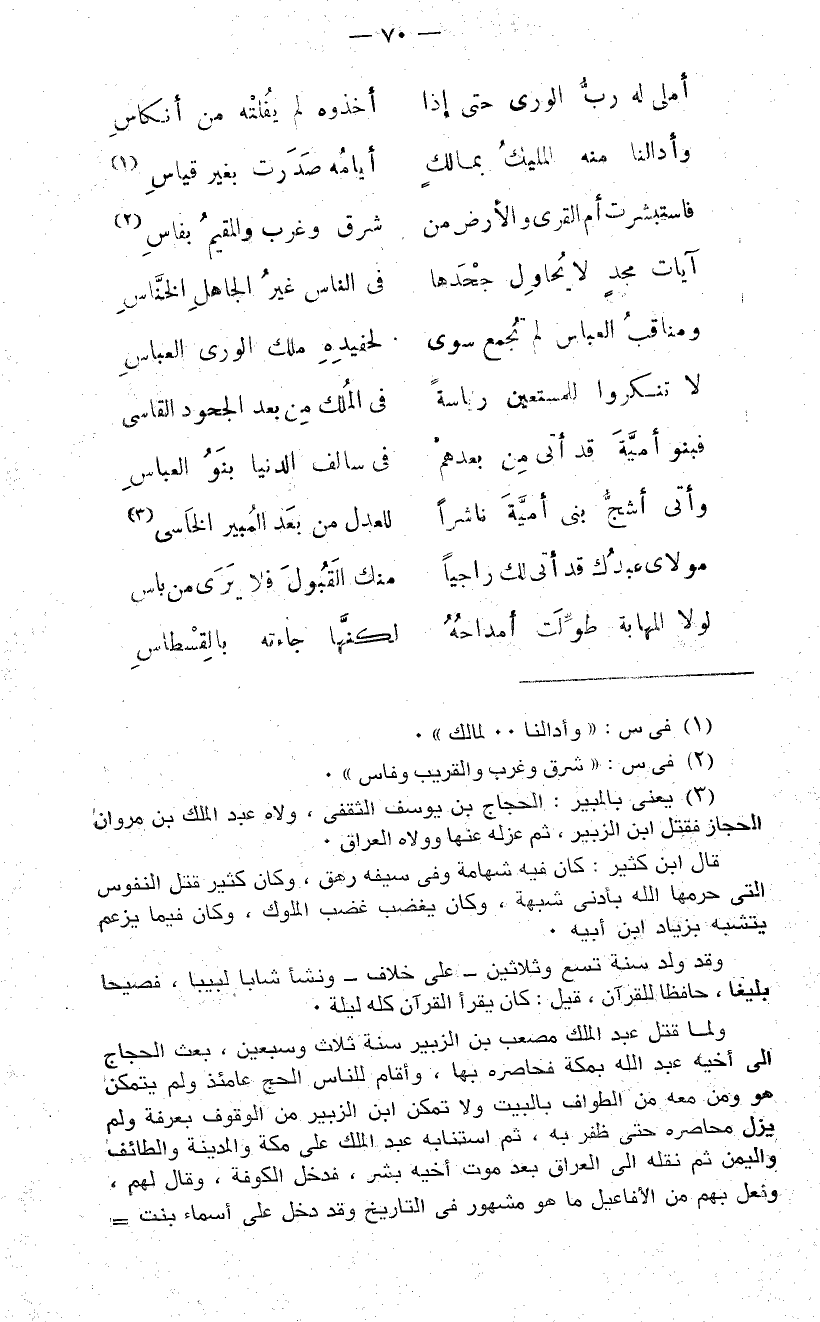 — ٧٠ —
أملى له ربُّ الورى حتى إذا أخذوه لم يُفلتْه من أنكاسِ
وأدالنا منه المليكُ بمالكٍ أيامُه صَدَرت بغير قياسِ (١)
فاستبشرت أم القرى والأرض من شرق وغرب والمقيمُ بفاسِ (٢)
آيات مجدٍ لا يُحاولِ جحْدَها فى الناس غيرُ الجاهلِ الخنَّاسِ
ومناقبُ العباس لم تُجمع سوى لحفيدِهِ ملك الورى العباسِ
لا تنكروا للمستعين رياسةً فى المُلك مِن بعد الجحود القاسى
فبنو أميَّةَ قد أتى مِن بعدهمْ فى سالف الدنيا بنَوُ العباسِ
وأتى أشجُّ بنى أميَّةَ ناشراً للعدل من بعَد المُبير الخَاسى (٣)
مولاى عبدُك قد أتى لك راجياً منك القَبُولَ فلا يَرَى من باس
لولا المهابة طوِّلَت أمداحهُ لكنَّها جاءته بالقِسْطاسِ
(١) فى س : « وأدالنا ٠٠ لمالك » ٠
(٢) فى س : « شرق وغرب والقريب وفاس » ٠
(٣) يعنى بالمبير : الحجاج بن يوسف الثقفى ، ولاه عبد الملك بن مروان
الحجاز فقتل ابن الزبير ، ثم عزله عنها وولاه العراق ٠
قال ابن كثير : كان فيه شهامة وفى سيفه رهق ، وكان كثير قتل النفوس
التى حرمها الله بأدنى شبهة ، وكان يغضب غضب الملوك ، وكان فيما يزعم
يتشبه بزياد ابن أبيه ٠
وقد ولد سنة تسع وثلاثين – على خلاف – ونشأ شابا لبيبا ، فصيحا
بليغا ، حافظا للقرآن ، قيل : كان يقرأ القرآن كله ليلة ٠
ولما قتل عبد الملك مصعب بن الزبير سنة ثلاث وسبعين ، بعث الحجاج
الى أخيه عبد الله بمكة فحاصره بها ، وأقام للناس الحج عامئذ ولم يتمكن
هو ومن معه من الطواف بالبيت ولا تمكن ابن الزبير من الوقوف بعرفة ولم
يزل محاصره حتى ظفر به ، ثم استنابه عبد الملك على مكة والمدينة والطائف
واليمن ثم نقله الى العراق بعد موت أخيه بشر ، فدخل الكوفة ، وقال لهم ،
ونعل بهم من الأفاعيل ما هو مشهور فى التاريخ وقد دخل على أسماء بنت =